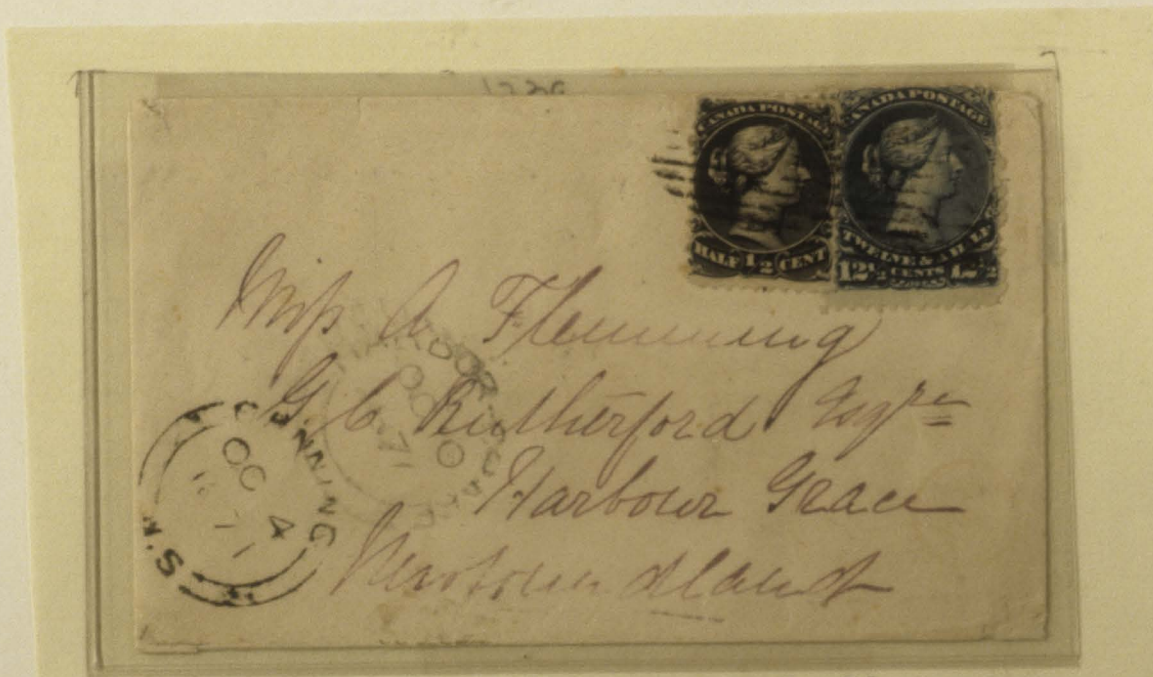 CANADA POSTAGE
HALF 1/2 CENT
CANADA POSTAGE
TWELVE & A HALF
12 1/2 CENTS 12 1/2
Miss A Flemming
G. C. Rutherford Esqre
Harbour Grace
Newfoundland
CANNING
OC 4
71
N.S.